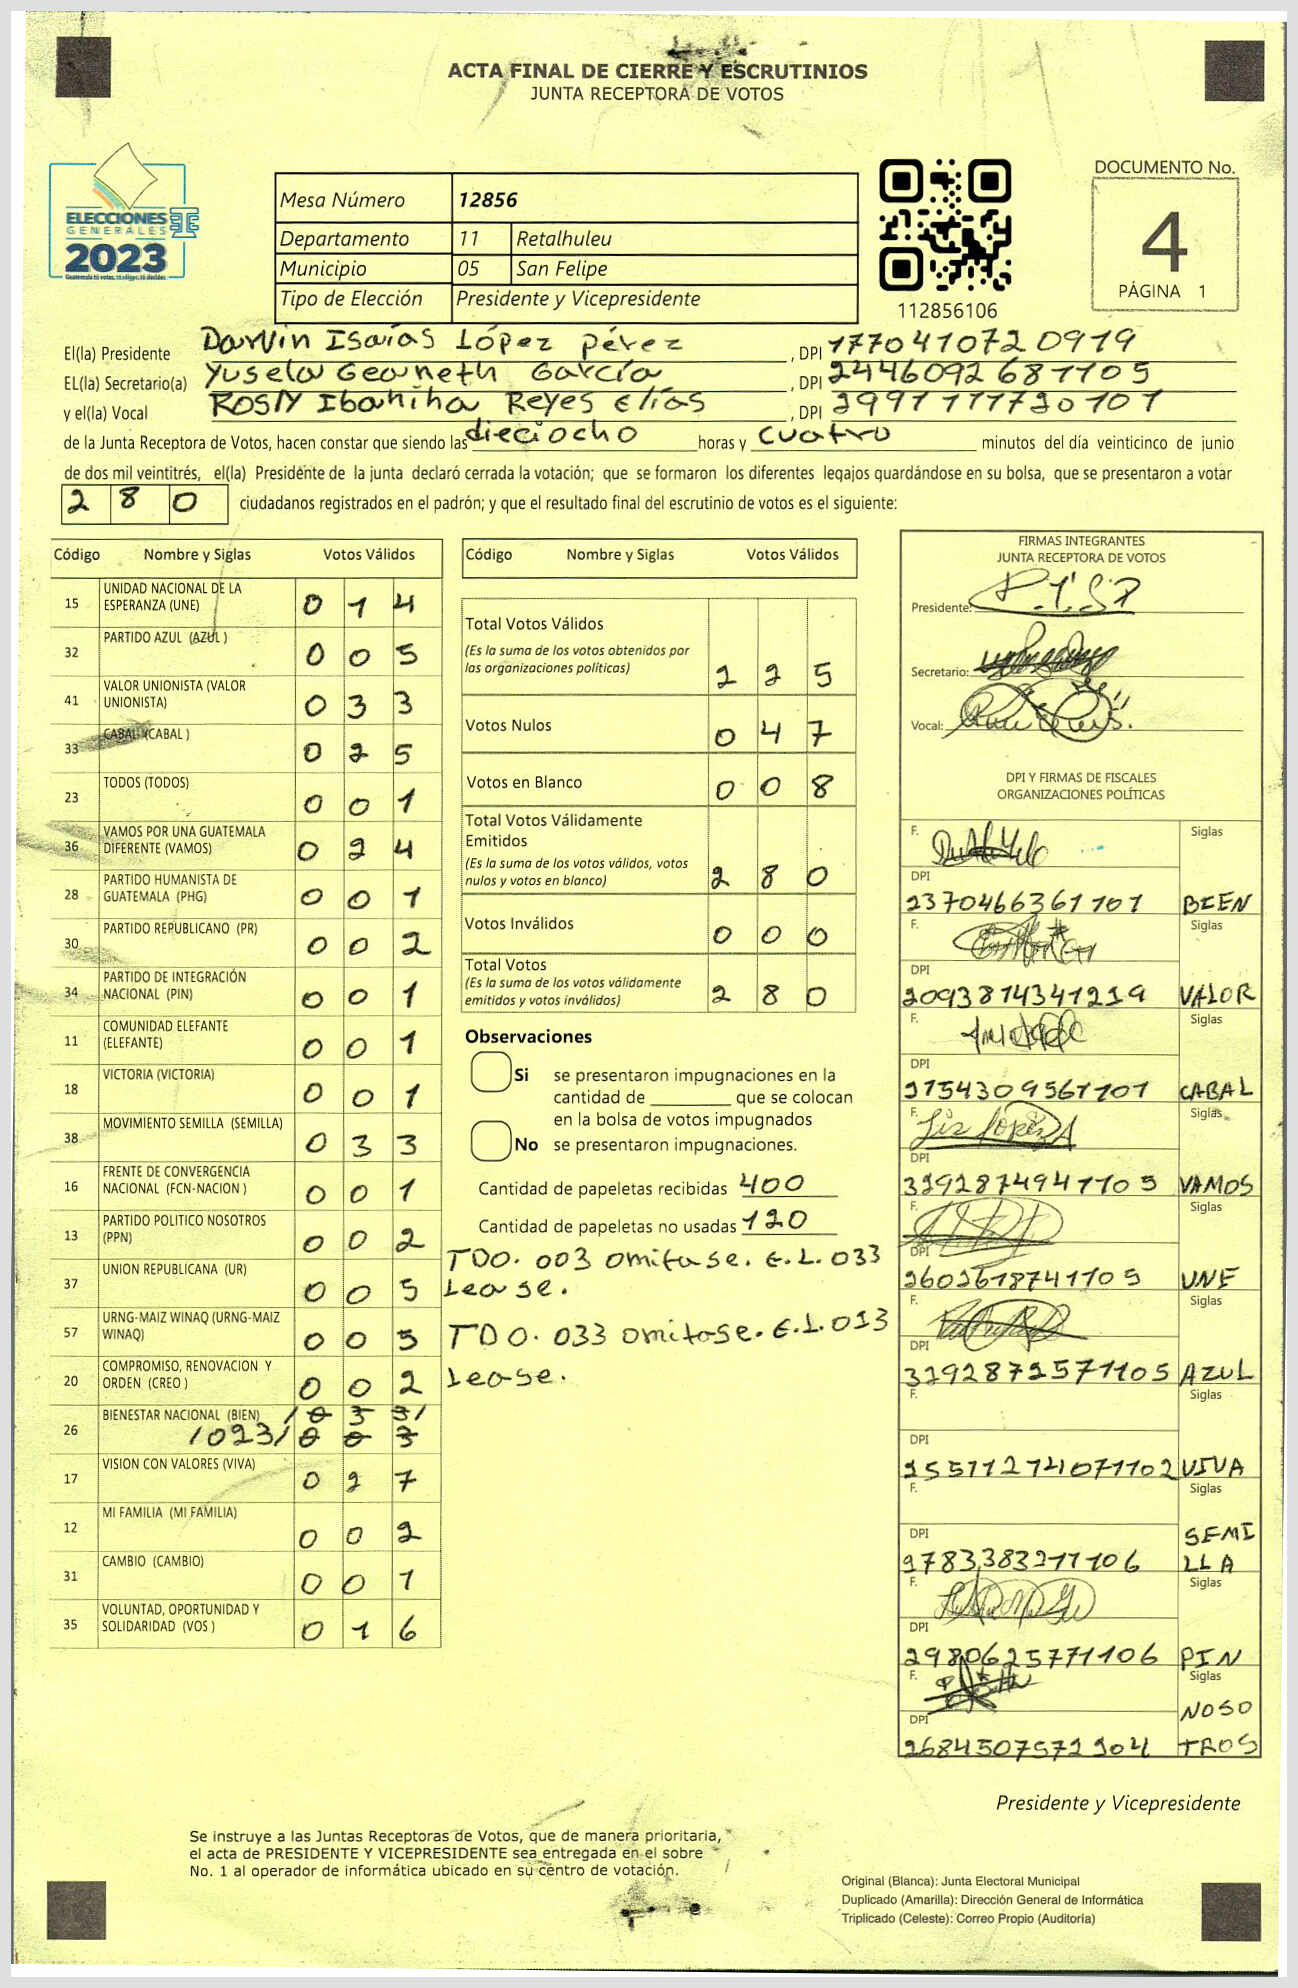 ACTA FINAL DE CIERRE Y ESCRUTINIOS
JUNTA RECEPTORA DE VOTOS
ELECCIONES
GENERALES
2023
Mesa Número 12856
Departamento 11 Retalhuleu
Municipio 05 San Felipe
Tipo de Elección Presidente y Vicepresidente
112856106
DOCUMENTO No.
4
PÁGINA 1
El(la) Presidente Darvin Isaías López Pérez, DPI 1770410720919
EL(la) Secretario(a) Yusela Geaneth García, DPI 2446092681105
y el(la) Vocal Rosly Ibaniha Reyes Elías, DPI
de la Junta Receptora de Votos, hacen constar que siendo las dieciocho horas y cuatro minutos del día veinticinco de junio
de dos mil veintitrés, el(la) Presidente de la junta declaró cerrada la votación; que se formaron los diferentes legajos guardándose en su bolsa, que se presentaron a votar
280 ciudadanos registrados en el padrón; y que el resultado final del escrutinio de votos es el siguiente:
Código Nombre y Siglas Votos Válidos
15 UNIDAD NACIONAL DE LA ESPERANZA (UNE) 0 1 4
32 PARTIDO AZUL (AZUL ) 0 0 5
41 VALOR UNIONISTA (VALOR UNIONISTA) 0 3 3
33 CABAL (CABAL ) 0 2 5
23 TODOS (TODOS) 0 0 1
36 VAMOS POR UNA GUATEMALA DIFERENTE (VAMOS) 0 2 4
28 PARTIDO HUMANISTA DE GUATEMALA (PHG) 0 0 1
30 PARTIDO REPUBLICANO (PR) 0 0 2
34 PARTIDO DE INTEGRACIÓN NACIONAL (PIN) 0 0 1
11 COMUNIDAD ELEFANTE (ELEFANTE) 0 0 1
18 VICTORIA (VICTORIA) 0 0 1
38 MOVIMIENTO SEMILLA (SEMILLA) 0 3 3
16 FRENTE DE CONVERGENCIA NACIONAL (FCN-NACION ) 0 0 1
13 PARTIDO POLITICO NOSOTROS (PPN) 0 0 2
37 UNION REPUBLICANA (UR) 0 0 5
57 URNG-MAIZ WINAQ (URNG-MAIZ WINAQ) 0 0 5
20 COMPROMISO, RENOVACION Y ORDEN (CREO ) 0 0 2
26 BIENESTAR NACIONAL (BIEN) / 0 3 3/
/023/ 0 0 3
17 VISION CON VALORES (VIVA) 0 2 7
12 MI FAMILIA (MI FAMILIA) 0 0 2
31 CAMBIO (CAMBIO) 0 0 1
35 VOLUNTAD, OPORTUNIDAD Y SOLIDARIDAD (VOS ) 0 1 6
Código Nombre y Siglas Votos Válidos
Total Votos Válidos 2 2 5
(Es la suma de los votos obtenidos por
las organizaciones políticas)
Votos Nulos 0 4 7
Votos en Blanco 0 0 8
Total Votos Válidamente
Emitidos 2 8 0
(Es la suma de los votos válidos, votos
nulos y votos en blanco)
Votos Inválidos 0 0 0
Total Votos 2 8 0
(Es la suma de los votos válidamente
emitidos y votos inválidos)
Observaciones
Si se presentaron impugnaciones en la
cantidad de ________ que se colocan
en la bolsa de votos impugnados
No se presentaron impugnaciones.
Cantidad de papeletas recibidas 400
Cantidad de papeletas no usadas 120
TDO. 003 omitase. E.L. 033
Lease.
TDO. 033 omitase. E.L. 023
Lease.
FIRMAS INTEGRANTES
JUNTA RECEPTORA DE VOTOS
Presidente:
Secretario:
Vocal:
DPI Y FIRMAS DE FISCALES
ORGANIZACIONES POLÍTICAS
F. Siglas
DPI
2370466361101 BIEN
F. Siglas
DPI
2093814341219 VALOR
F. Siglas
DPI
CABAL
F. Siglas
DPI
3292874941105 VAMOS
F. Siglas
DPI
2602618741105 UNE
F. Siglas
DPI
3292872571105 AZUL
F. Siglas
DPI
VIVA
F. Siglas
DPI
SEMI
LLA
F. Siglas
DPI
2980625771106 PIN
F. Siglas
DPI
NOSO
TROS
Presidente y Vicepresidente
Se instruye a las Juntas Receptoras de Votos, que de manera prioritaria,
el acta de PRESIDENTE Y VICEPRESIDENTE sea entregada en el sobre
No. 1 al operador de informática ubicado en su centro de votación.
Original (Blanca): Junta Electoral Municipal
Duplicado (Amarilla): Dirección General de Informática
Triplicado (Celeste): Correo Propio (Auditoría)